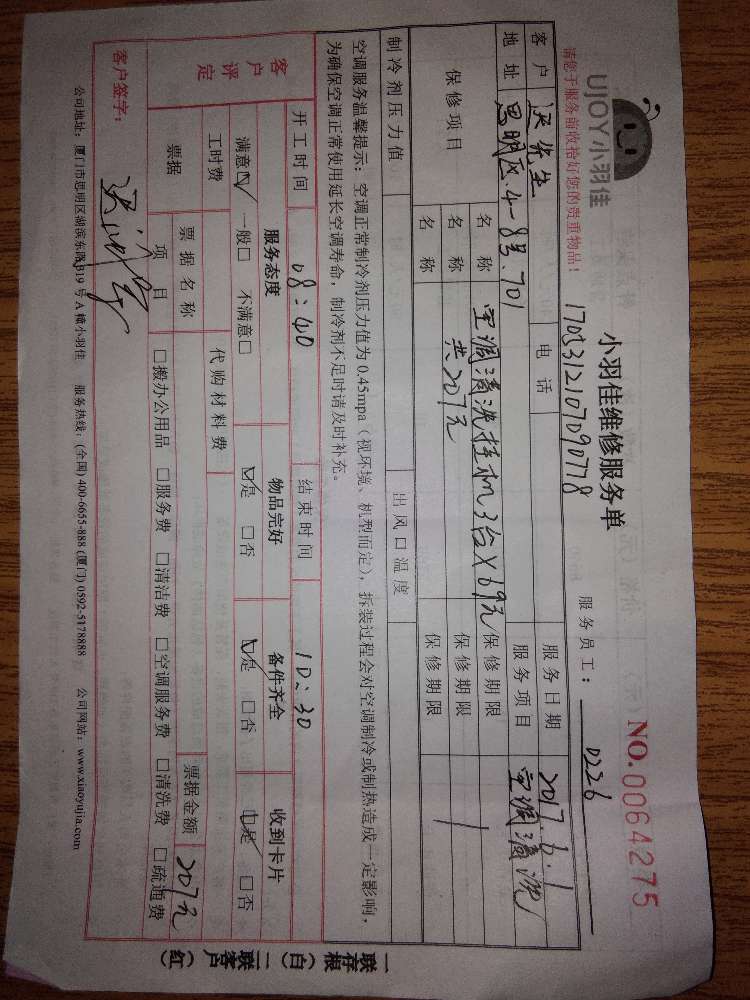 UJOY小羽佳
小羽佳维修服务单
NO.0064275
请您于服务前收拾好您的贵重物品!
1705312107090778
服务员工: 0226
客户 先生 电话 服务日期 2017.6.1
地址 思明区.4-8号.701 服务项目 空调清洗
保修项目 名称 空调清洗挂机3台X69元 保修期限
名称 共207元 保修期限
名称 保修期限
制冷剂压力值 出风口温度
空调服务温馨提示:空调正常制冷剂压力值为0.45mpa(视环境、机型而定),拆装过程会对空调制冷或制热造成一定影响,
为确保空调正常使用延长空调寿命,制冷剂不足时请及时补充。
开工时间 08:40 结束时间 10:30
客户评定 服务态度 物品完好 备件齐全 收到卡片
满意☑ 一般□ 不满意□ ☑是 □否 ☑是 □否 ☑是 □否
工时费 代购材料费
票据 票据名称 票据金额 207元
项目 □搬办公用品 □服务费 □清洁费 □空调服务费 □清洗费 □疏通费
客户签字:
公司地址:厦门市思明区湖滨东路319号A幢小羽佳 服务热线:(全国)400-6655-888 (厦门)0592-5178888 公司网站:www.xiaoyujia.com
一联存根(白)二联客户(红)